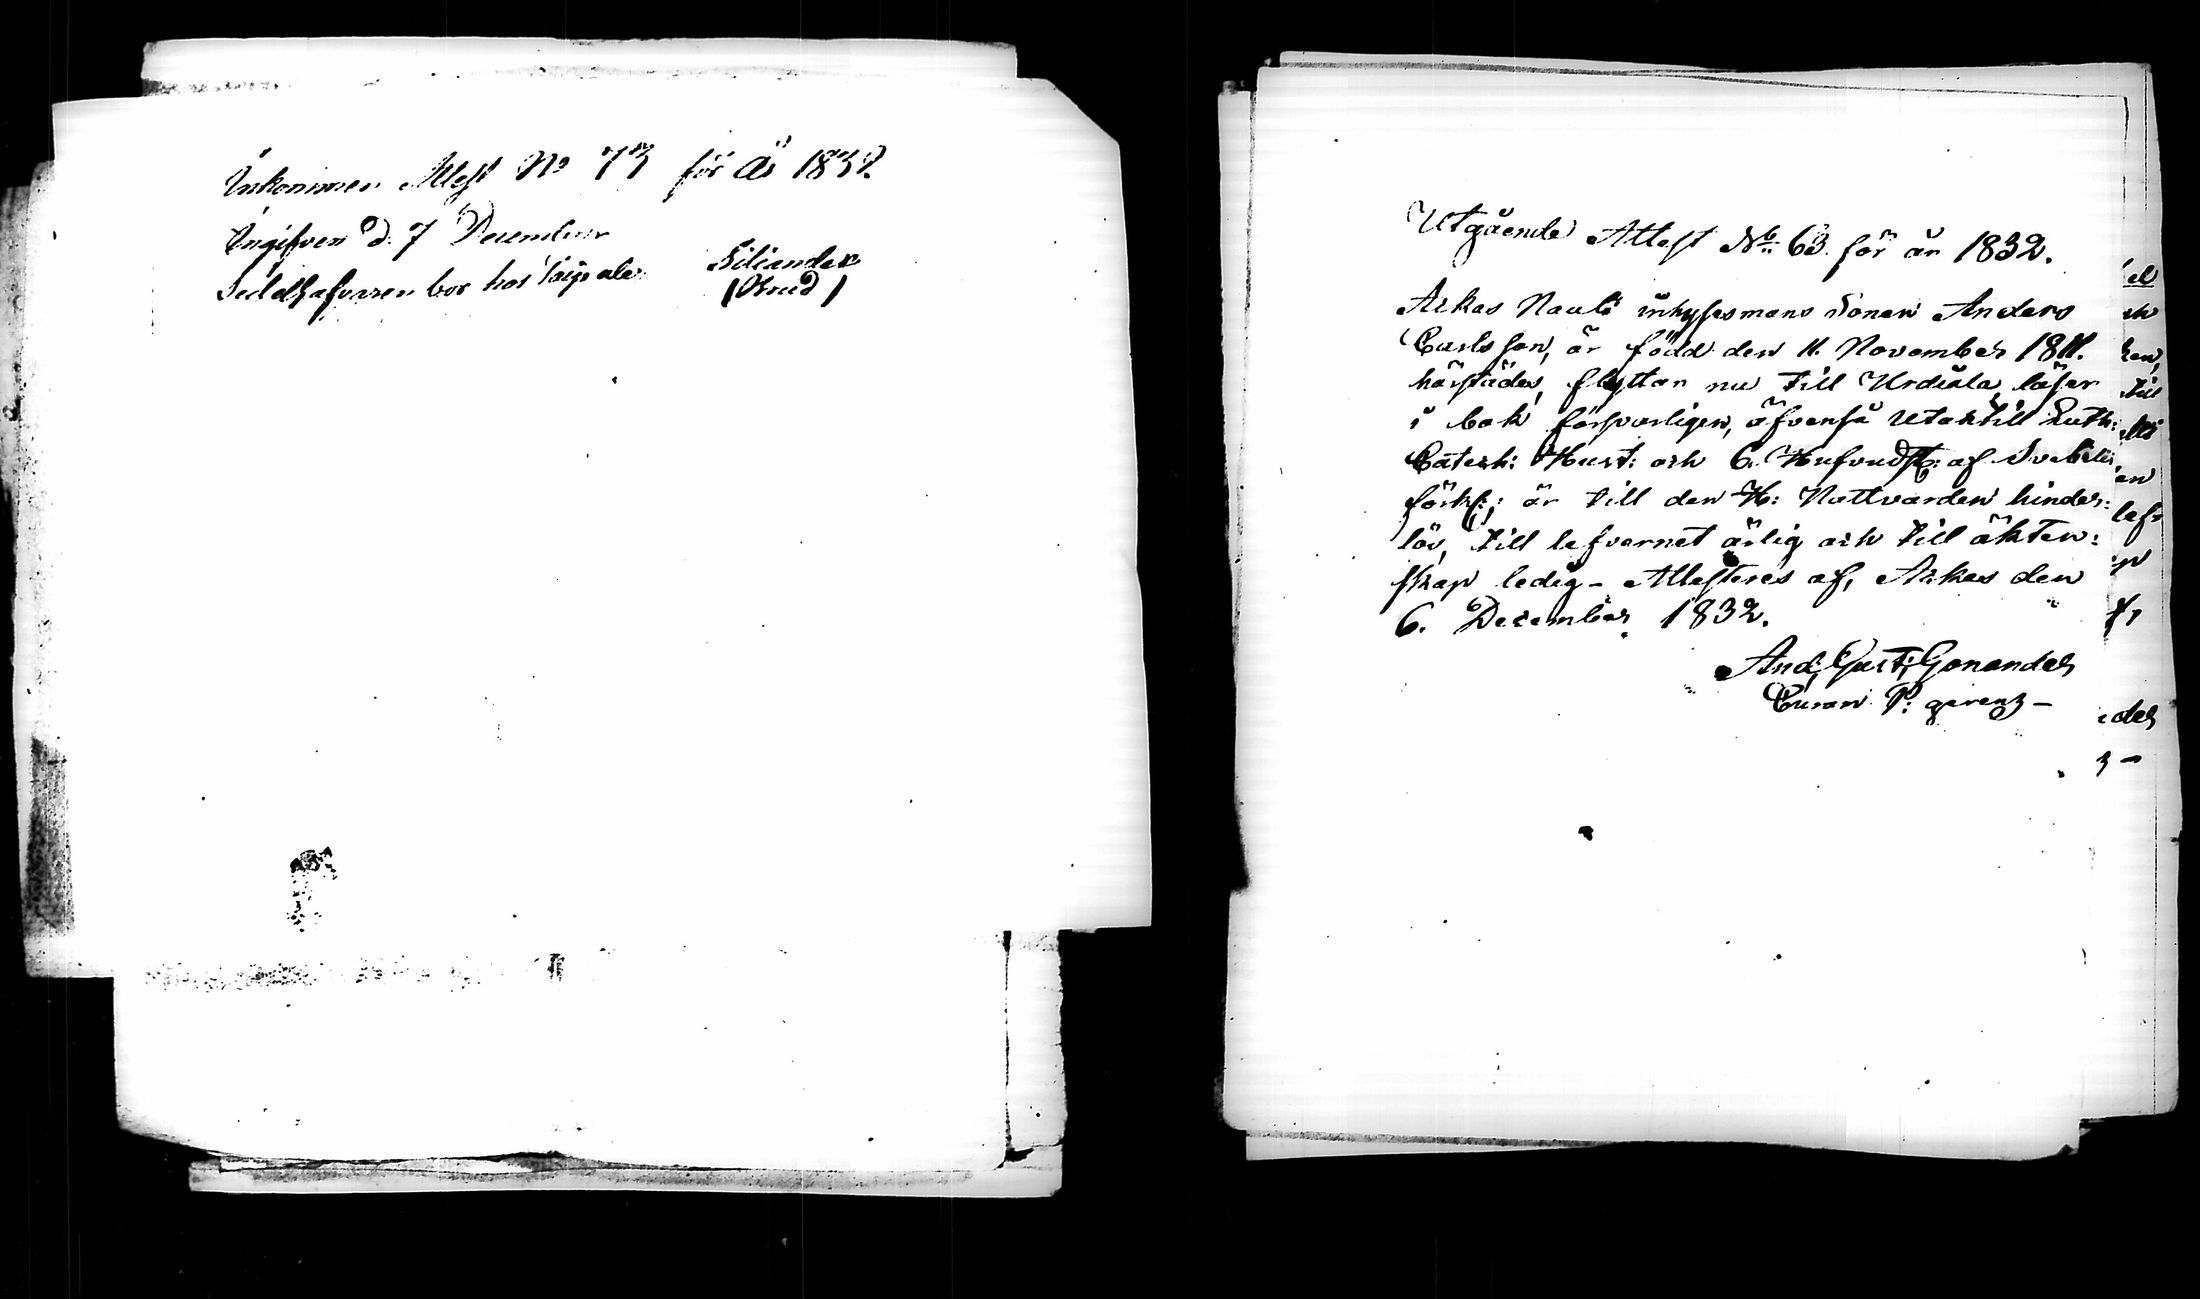 Inkommen Attest No 73 för År 1832.
Ingifven d. 7 December
Sedelhafvaren bor hos Taipale
Siliander
Utgående Attest No: 63 för år 1832.
Ackas Naulo inhysesmans sonen Anders
Carlsson, är född den 11. November 1811.
härstädes, flyttar nu till Urdiala, läser
i bok försvarligen, äfvenså utantill Luth:
Catech: Hust: och 6. Hufvudst: af Svebilii
förkl:; är till den H: Nattvarden hinder:
lös, till lefvernet ärlig och till äkten:
skap ledig - Attesteres af, Ackas den
6. December 1832.
And: Gust: Gonander
Curam P: gerens -